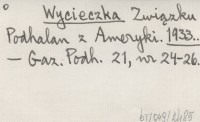 Wycieczka Związku
Podhalan z Ameryki. 1933..
— Gaz. Podh. 21, nr 24-26.